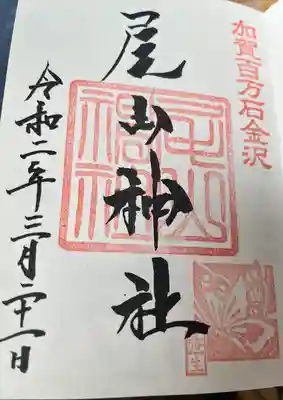 加賀百万石金沢
尾山神社
令和二年三月二十一日